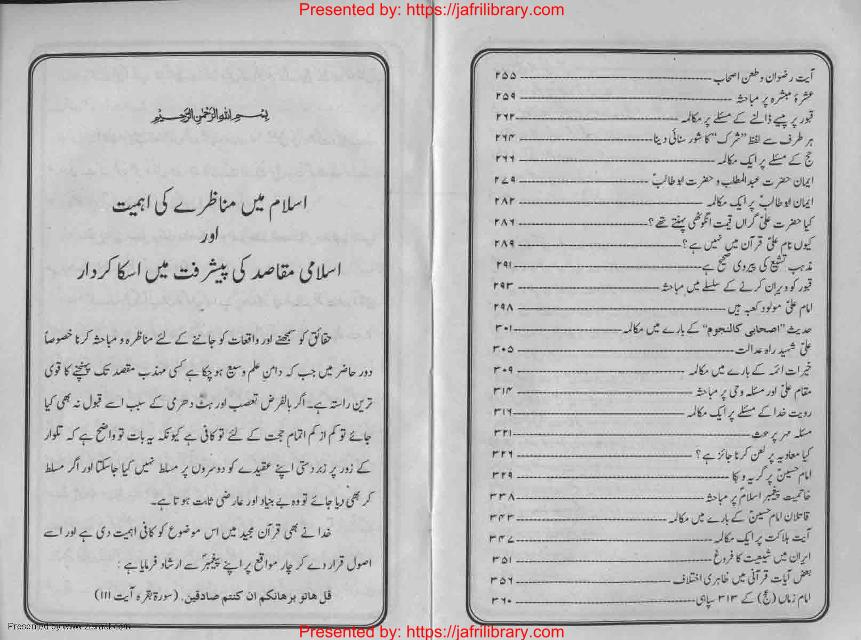 Presented by: https://jafrilibrary.com
آیت رضوان و طعن اصحاب ۲۵۵
عشرۂ مبشرہ پر مباحثہ ۲۵۹
قبور پر پیسے ڈالنے کے مسئلے پر مکالمہ ۲۶۲
ہر طرف سے لفظ "شرک" کا شور سنائی دینا ۲۶۴
حج کے مسئلے پر ایک مکالمہ ۲۶۶
ایمان حضرت عبدالمطلب و حضرت ابوطالبؑ ۲۷۹
ایمان ابوطالبؑ پر ایک مکالمہ ۲۸۲
کیا حضرت علیؑ گراں قیمت انگوٹھی پہنتے تھے؟ ۲۸۶
کیوں نام علیؑ قرآن میں نہیں ہے؟ ۲۸۹
مذہب تشیع کی پیروی صحیح ہے ۲۹۱
قبور کو ویران کرنے کے سلسلے میں مباحثہ ۲۹۳
امام علیؑ مولود کعبہ ہیں ۲۹۸
حدیث "اصحابی کالنجوم" کے بارے میں مکالمہ ۳۰۱
علیؑ شہید راہ عدالت ۳۰۵
خیرات ائمہ کے بارے میں مکالمہ ۳۰۹
مقام علیؑ اور مسئلہ وحی پر مباحثہ ۳۱۴
رویت خدا کے مسئلے پر ایک مکالمہ ۳۱۶
مسئلہ مہر پر بحث ۳۲۱
کیا معاویہ پر لعن کرنا جائز ہے؟ ۳۲۶
امام حسینؑ پر گریہ و بکا ۳۲۹
خاتمیت پیغمبر اسلامؐ پر مباحثہ ۳۳۸
قاتلان امام حسینؑ کے بارے میں مکالمہ ۳۴۳
آیت ہلاکت پر ایک مکالمہ ۳۴۷
ایران میں شیعیت کا فروغ ۳۵۱
بعض آیات قرآنی میں ظاہری اختلاف ۳۵۶
امام زماں (عج) کے ۳۱۳ سپاہی ۳۶۰
بسم اللہ الرحمن الرحیم
اسلام میں مناظرے کی اہمیت
اور
اسلامی مقاصد کی پیشرفت میں اسکا کردار
حقائق کو سمجھنے اور واقعات کو جاننے کے لئے مناظرہ و مباحثہ کرنا خصوصاً
دور حاضر میں جب کہ دامن علم وسیع ہو چکا ہے کسی مہذب مقصد تک پہنچنے کا قوی
ترین راستہ ہے۔ اگر بالفرض تعصب اور ہٹ دھرمی کے سبب اسے قبول نہ بھی کیا
جائے تو کم از کم اتمام حجت کے لئے تو کافی ہے کیونکہ یہ بات تو واضح ہے کہ تلوار
کے زور پر زبردستی اپنے عقیدے کو دوسروں پر مسلط نہیں کیا جاسکتا اور اگر مسلط
کر بھی دیا جائے تو وہ بے بنیاد اور عارضی ثابت ہوتا ہے۔
خدا نے بھی قرآن مجید میں اس موضوع کو کافی اہمیت دی ہے اور اسے
اصول قرار دے کر چار مواقع پر اپنے پیغمبرؐ سے ارشاد فرمایا ہے :
قل هاتو برهانکم ان کنتم صادقین. (سورۂ بقرہ آیت ۱۱۱)
Presented by: https://jafrilibrary.com